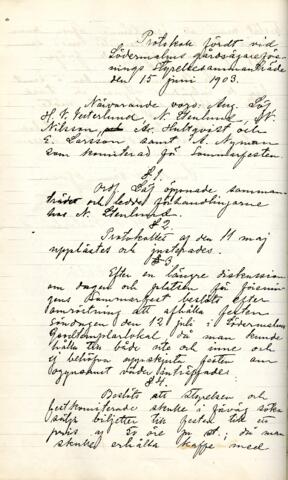 Protokoll fördt vid
Södermalms Gårdsägareföre-
nings Styrelsesammanträde
den 15 juni 1903.
Närvarande voro: Aug. Löf
H. V. Vesterlund, N. Stenlund, N.
Nilson, A. Hultqvist och
E. Larsson samt A. Nyman
som komiterad för Sommarfesten
§1.
Ordf. Löf öppnade samman-
trädet och ledde förhandlingarne
hos N. Stenlund.
§2.
Protokollet af den 11 maj
upplästes och justerades.
§3
Efter en längre diskussion
om dagen och platsen för förenin-
gens sommarfest beslöts efter
omröstning att afhålla festen
Söndagen den 12 juli i Södermalms
Godtemplarlokal, då man kunde
hålla till både ute och inne och
ej behöfva uppskjuta festen om
ogynsamt väder inträffade.
§4.
Beslöts att styrelsen och
festkomiterade skulle i förväg söka
sälja biljetter till festen till ett
pris af öre pr st.; då man
skulle erhålla kaffe med